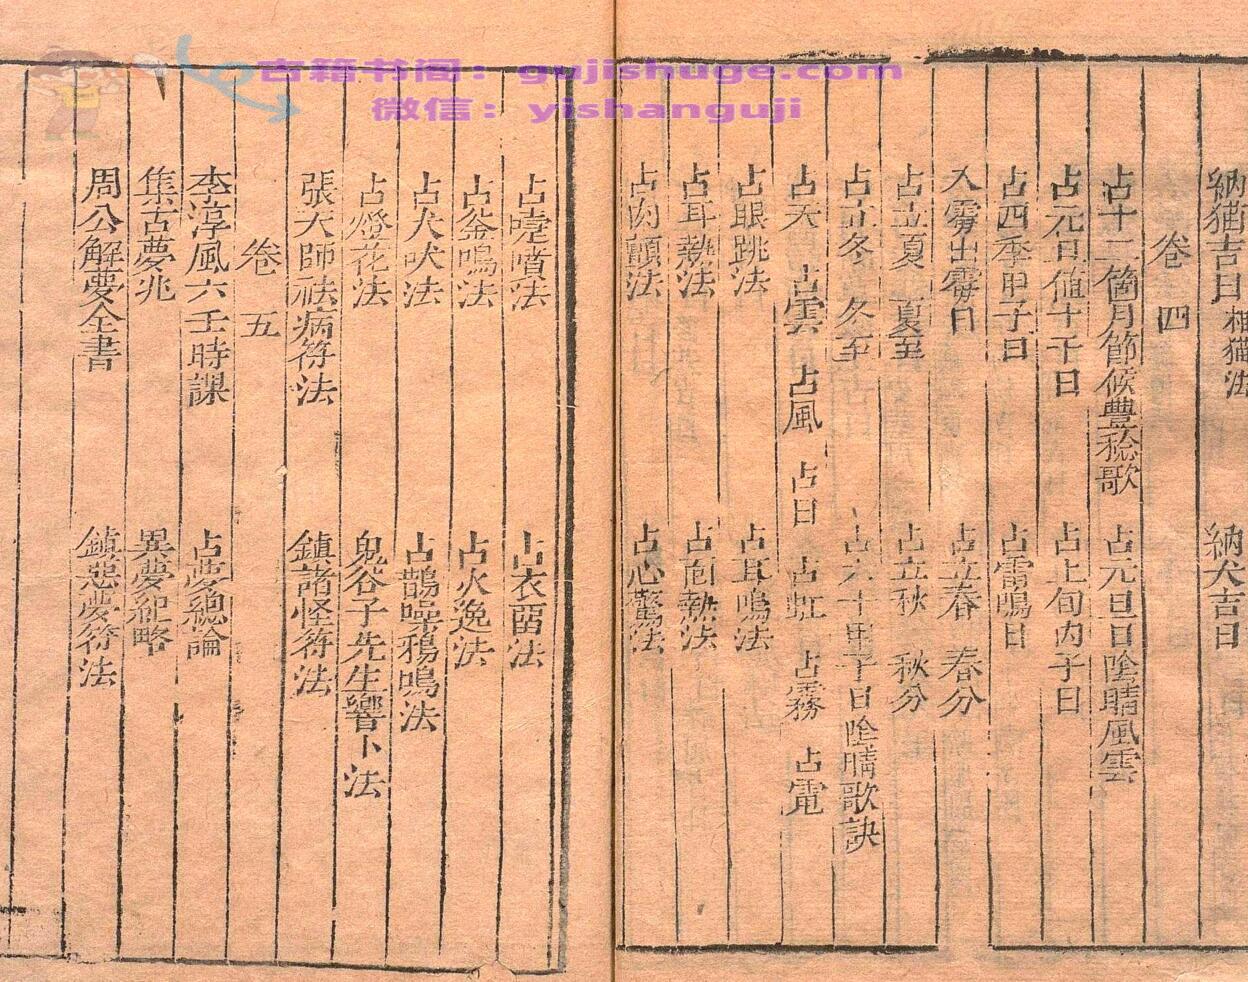 古籍书阁：gujishuge.com
微信：yishanguji
納猫吉日 相猫法 納犬吉日
卷四
占十二箇月節候豊稔歌 占元旦日陰晴風雲
占元旦值十干日 占上旬內子日
占四季甲子日 占雷鳴日
入霉出霉日 占立春 春分
占立夏 夏至 占立秋 秋分
占立冬 冬至 占六十甲子日陰晴歌訣
占天 占雲 占風 占日 占虹 占霧 占電
占眼跳法 占耳鳴法
占耳熱法 占面熱法
占肉顫法 占心驚法
占嚏噴法 占衣留法
占釜鳴法 占火逸法
占犬吠法 占鵲噪鴉鳴法
占燈花法 鬼谷子先生響卜法
張天師祛病符法 鎮諸怪符法
卷五
李淳風六壬時課 占夢總論
集古夢兆 異夢紀略
周公解夢全書 鎮惡夢符法